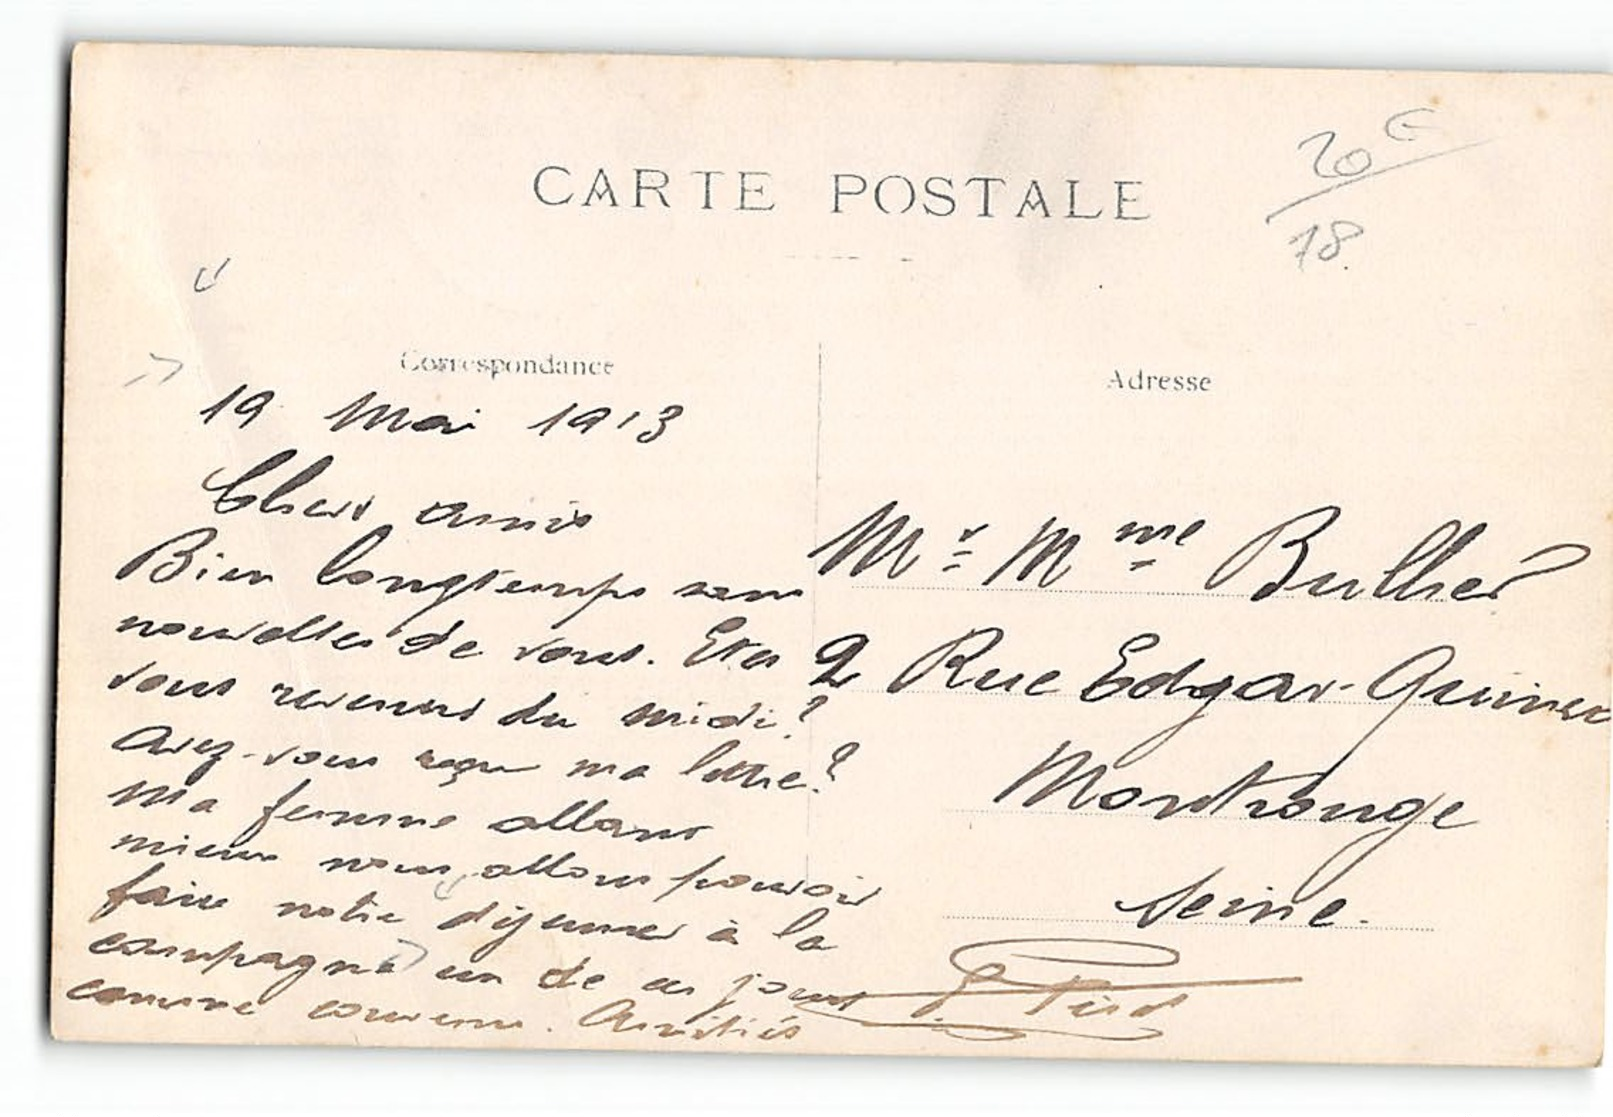 CARTE POSTALE
20 €
78.
Correspondance
19 Mai 1913
Chers amis
Bien longtemps sans
nouvelles de vous. Etes
vous revenus du midi?
Avez-vous reçu ma lettre?
Ma femme allant
mieux nous allons pouvoir
faire notre déjeuner à la
campagne un de ces jours
comme convenu. Amitiés
Adresse
Mr Mme Bullier
2 Rue Edgar Quinet
Montrouge
Seine.